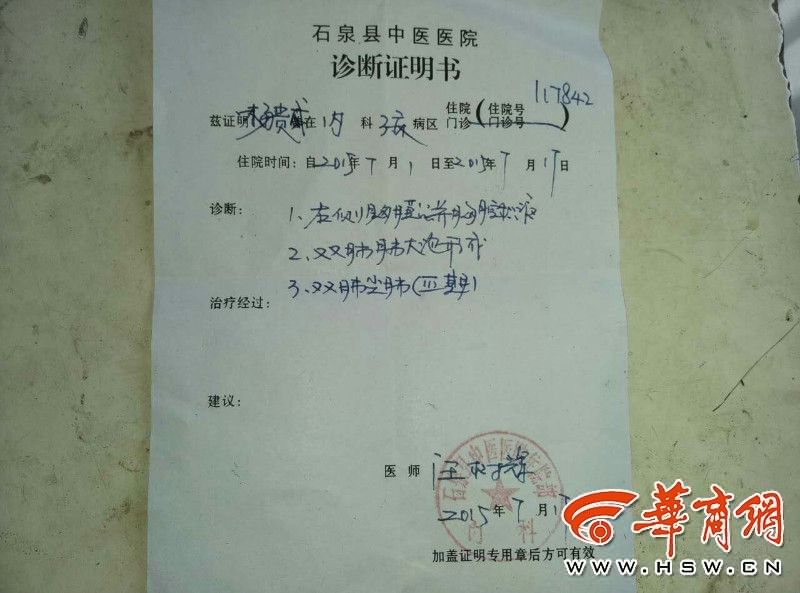 石泉县中医医院
诊断证明书
117842
兹证明 在 内 科 病区 住院 门诊 (住院号 门诊号)
住院时间：自2015年7月1日至2015年7月17日
诊断：
1、左侧胸膜炎并胸腔积液
2、双肺肺大泡形成
3、双肺尘肺(Ⅲ期)
治疗经过：
建议：
医师 汪
2015年7月17
加盖证明专用章后方可有效
华商网
WWW.HSW.CN